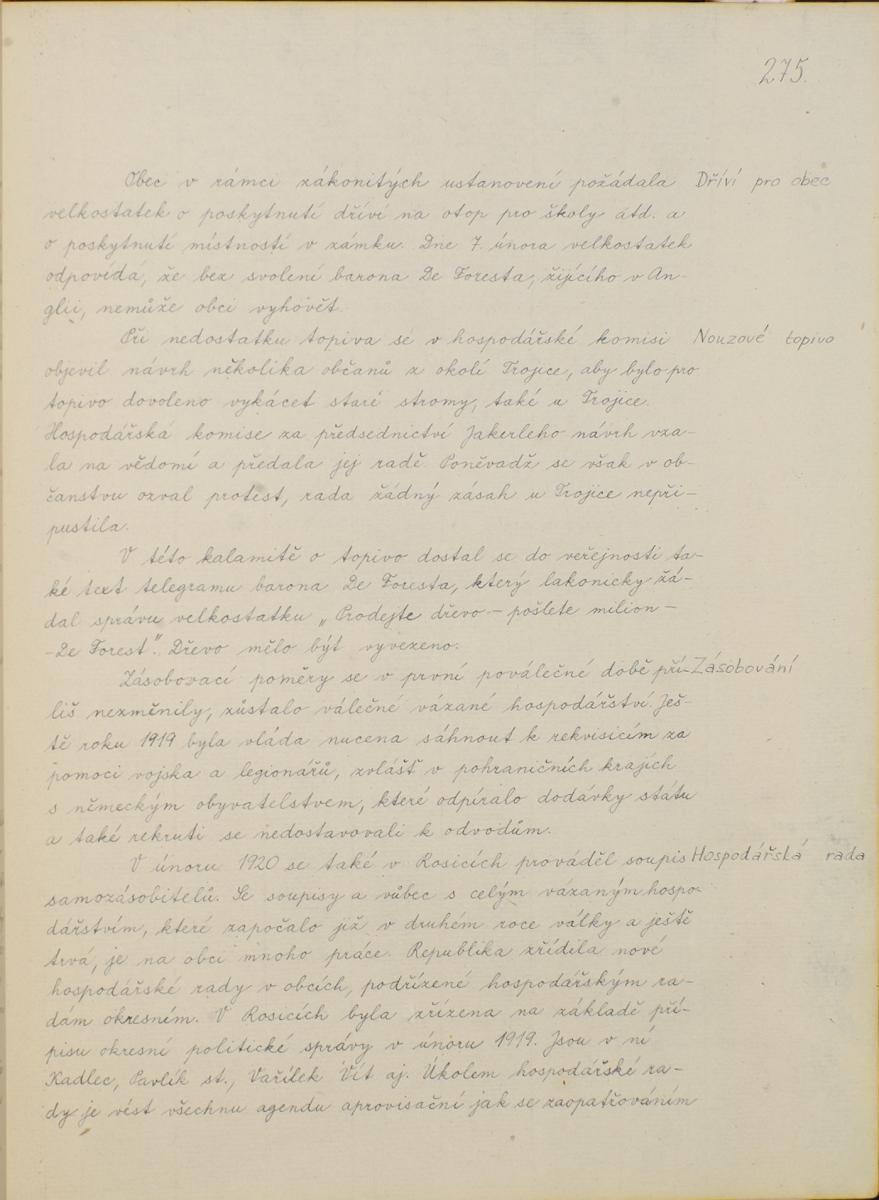 275.
Obec v rámci zákonitých ustanovení požádala Dříví pro obec
velkostatek o poskytnutí dříví na otop pro školy atd. a
o poskytnutí místností v zámku. Dne 7. února velkostatek
odpovídá, že bez svolení barona De Foresta, žijícího v An-
glii, nemůže obci vyhovět.
Při nedostatku topiva se v hospodářské komisi Nouzové topivo
objevil návrh několika občanů z okolí Trojice, aby bylo pro
topivo dovoleno vykácet staré stromy, také u Trojice.
Hospodářská komise za předsednictví Jakerleho návrh vza-
la na vědomí a předala jej radě. Poněvadž se však v ob-
čanstvu ozval protest, rada žádný zásah u Trojice nepři-
pustila.
V této kalamitě o topivo dostal se do veřejnosti ta-
ké text telegramu barona De Foresta, který lakonicky žá-
dal správu velkostatku „Prodejte dřevo – pošlete milion –
- De Forest". Dřevo mělo být vyvezeno.
Zásobovací poměry se v první poválečné době pří- Zásobování
liš nezměnily, zůstalo válečné vázané hospodářství. Ješ-
tě roku 1919 byla vláda nucena sáhnout k rekvisicím za
pomoci vojska a legionářů, zvlášť v pohraničních krajích
s německým obyvatelstvem, které odpíralo dodávky státu
a také rekruti se nedostavovali k odvodům.
V únoru 1920 se také v Rosicích prováděl soupis Hospodářská rada
samozásobitelů. Se soupisy a vůbec s celým vázaným hospo-
dářstvím, které započalo již v druhém roce války a ještě
trvá, je na obci mnoho práce. Republika zřídila nové
hospodářské rady v obcích, podřízené hospodářským ra-
dám okresním. V Rosicích byla zřízena na základě pří-
pisu okresní politické správy v únoru 1919. Jsou v ní
Kadlec, Pavlík st., Vařílek Vít aj. Úkolem hospodářské ra-
dy je vést všechnu agendu aprovisační jak se zaopatřováním